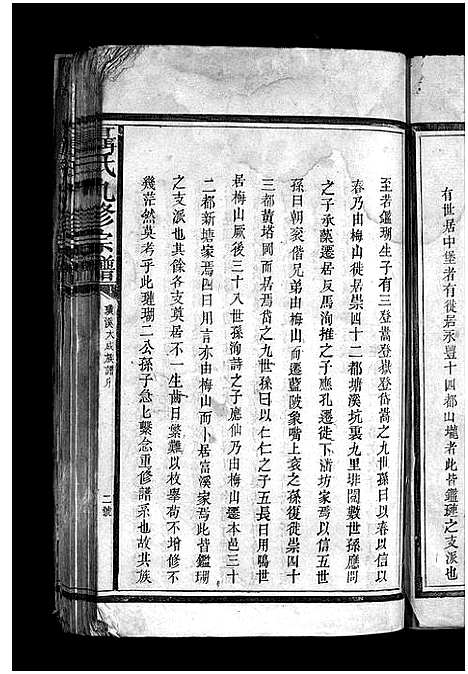 有世居中堡者有徙居永豐十四都山壠者此皆鑑璉之支派也
至若鑑瑚生子有三登嵩登嶽登岱嵩之九世孫曰以春以信以
春乃由梅山徙居崇四十二都塘溪坑裏九里排閱數世孫應問
之子承藻遷居反馬洵推之子應孔遷徙下清坊家焉以信五世
孫曰朝袞偕兄弟由梅山而遷藍陂象嘴上袞之孫復徙崇四十
三都黄塔國而居焉岱之九世孫曰以仁仁之子五長曰用騶世
居梅山厥後三十八世孫洵詩之子應仙乃由梅山遷本邑三十
二都新塘家焉四曰用言亦由梅山而卜居富溪家焉此皆鑑瑚
之支派也其餘各支奠居不一生齒日繁難以枚舉苟不增修不
幾茫然莫考乎此璉瑚二公孫子急上繫念重修譜系也故其族
氏九修宗譜
璜溪大成族譜序
二號